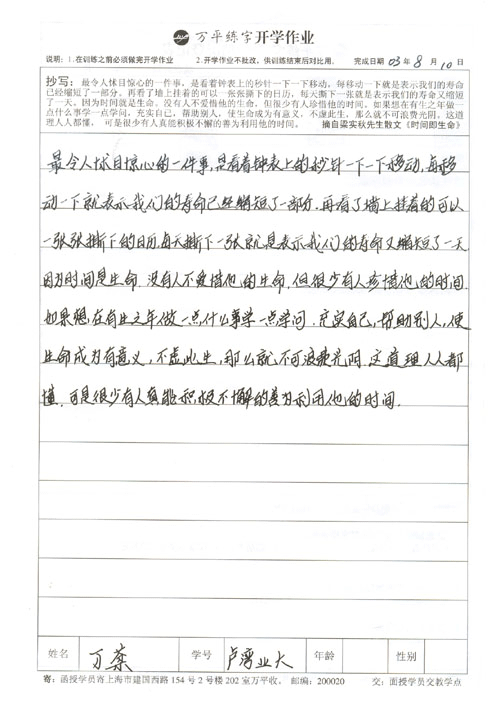 万平练字开学作业
说明：1.在训练之前必须做完开学作业 2.开学作业不批改，供训练结束后对比用。 完成日期 03年8月10日
抄写： 最令人怵目惊心的一件事，是看着钟表上的秒针一下一下移动，每移动一下就是表示我们的寿命
已经缩短了一部分。再看了墙上挂着的可以一张张撕下的日历，每天撕下一张就是表示我们的寿命又缩短
了一天。因为时间就是生命。没有人不爱惜他的生命，但很少有人珍惜他的时间。如果想在有生之年做一
点什么事学一点学问，充实自己，帮助别人，使生命成为有意义，不虚此生，那么就不可浪费光阴。这道
理人人都懂， 可是很少有人真能积极不懈的善为利用他的时间。 摘自梁实秋先生散文《时间即生命》
最令人怵目惊心的一件事，是看着钟表上的秒针一下一下移动，每移
动一下就表示我们的寿命已经缩短了一部分，再看了墙上挂着的可以
一张张撕下的日历，每天撕下一张就是表示我们的寿命又缩短了一天
因为时间是生命，没有人不爱惜他的生命，但很少有人珍惜他的时间
如果想在有生之年做一点什么事学一点学问，充实自己，帮助别人，使
生命成为有意义，不虚此生，那么就不可浪费光阴，这道理人人都
懂，可是很少有人真能积极不懈的善为利用他的时间.
姓名 万荣 学号 卢湾业大 年龄 性别
寄：函授学员寄上海市建国西路154号2号楼202室万平收。 邮编：200020 交：面授学员交教学点